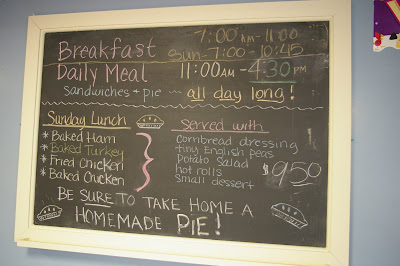 Breakfast 7:00AM-11:00
Sun-7:00-10:45
Daily Meal 11:00AM-4:30PM
sandwiches + pie ~ all day long!
Sunday Lunch
* Baked Ham
* Baked Turkey
* Fried Chicken
* Baked Chicken
Served with
cornbread dressing
tiny English peas
potato salad
hot rolls
small dessert
$9.50
BE SURE TO TAKE HOME A
HOMEMADE PIE!